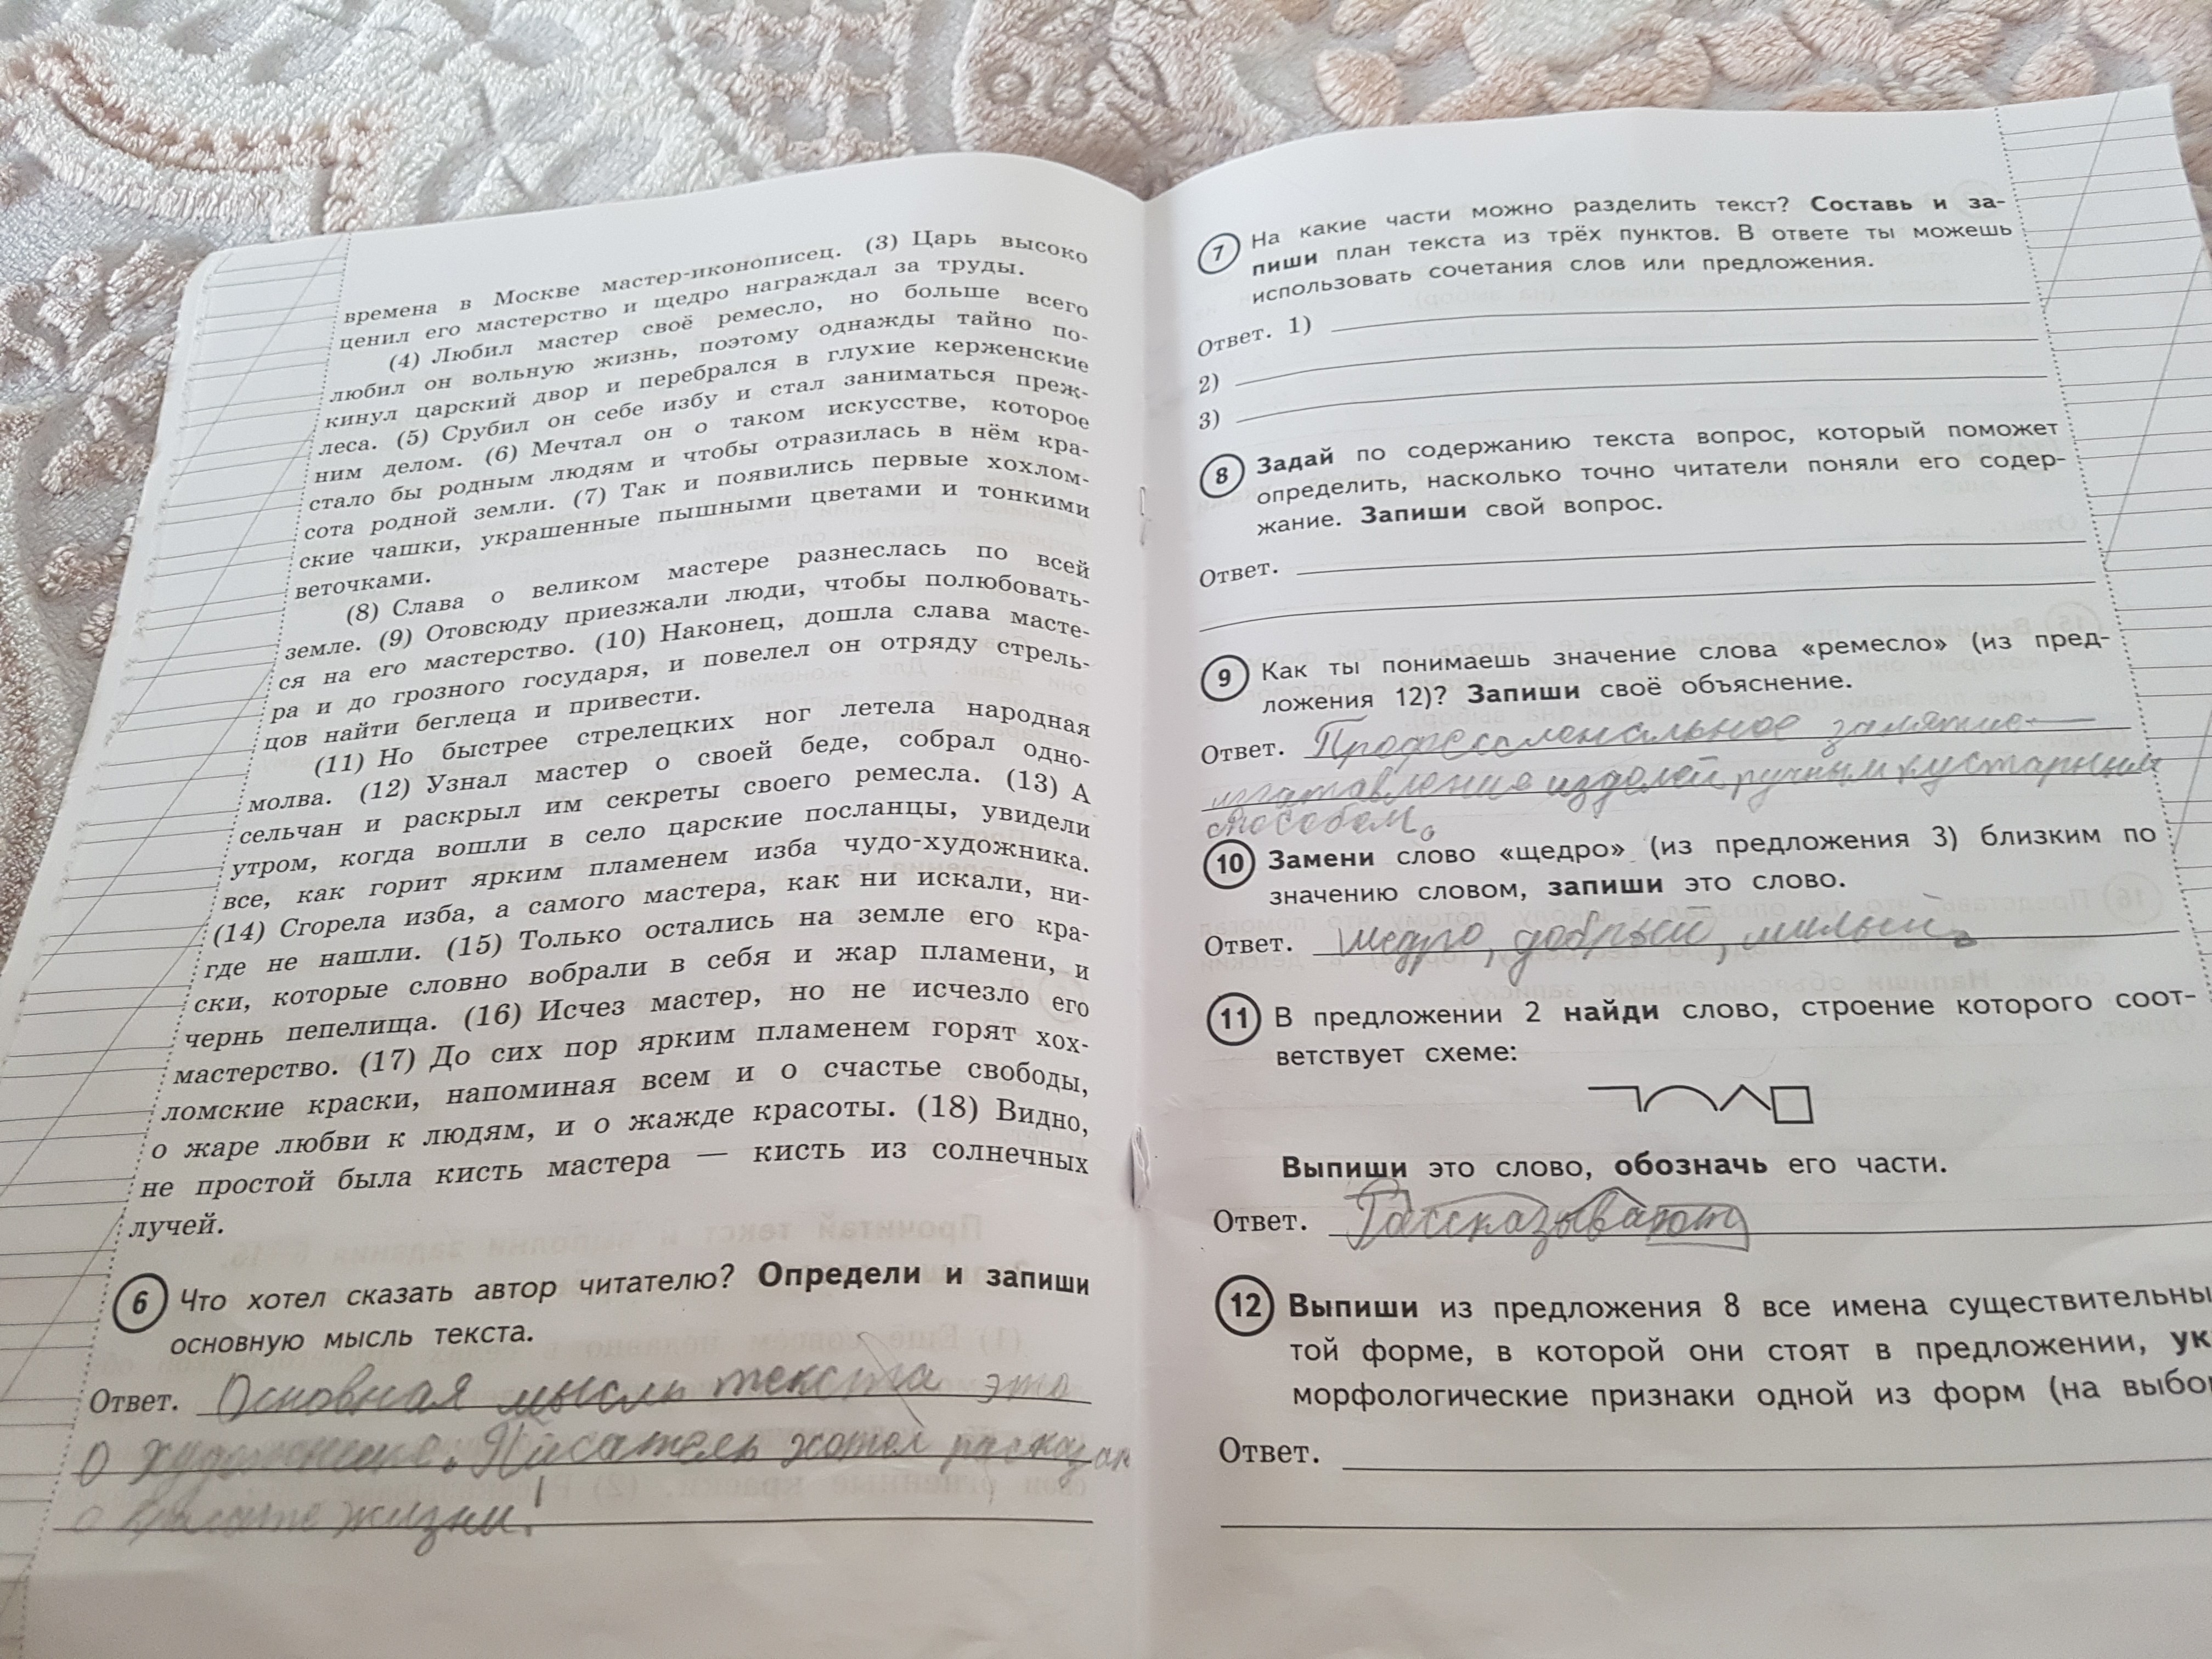 времена в Москве мастер-иконописец. (3) Царь высоко
ценил его мастерство и щедро награждал за труды.
(4) Любил мастер своё ремесло, но больше всего
любил он вольную жизнь, поэтому однажды тайно по-
кинул царский двор и перебрался в глухие керженские
леса. (5) Срубил он себе избу и стал заниматься преж-
ним делом. (6) Мечтал он о таком искусстве, которое
стало бы родным людям и чтобы отразилась в нём кра-
сота родной земли. (7) Так и появились первые хохлом-
ские чашки, украшенные пышными цветами и тонкими
веточками.
(8) Слава о великом мастере разнеслась по всей
земле. (9) Отовсюду приезжали люди, чтобы полюбовать-
ся на его мастерство. (10) Наконец, дошла слава масте-
ра и до грозного государя, и повелел он отряду стрель-
цов найти беглеца и привести.
(11) Но быстрее стрелецких ног летела народная
молва. (12) Узнал мастер о своей беде, собрал одно-
сельчан и раскрыл им секреты своего ремесла. (13) А
утром, когда вошли в село царские посланцы, увидели
все, как горит ярким пламенем изба чудо-художника.
(14) Сгорела изба, а самого мастера, как ни искали, ни-
где не нашли. (15) Только остались на земле его кра-
ски, которые словно вобрали в себя и жар пламени, и
чернь пепелища. (16) Исчез мастер, но не исчезло его
мастерство. (17) До сих пор ярким пламенем горят хох-
ломские краски, напоминая всем и о счастье свободы,
о жаре любви к людям, и о жажде красоты. (18) Видно,
не простой была кисть мастера — кисть из солнечных
лучей.
6 Что хотел сказать автор читателю? Определи и запиши
основную мысль текста.
Ответ. Основная мысль текста это
о художнике. Писатель хотел
о красоте жизни!
7 На какие части можно разделить текст? Составь и за-
пиши план текста из трёх пунктов. В ответе ты можешь
использовать сочетания слов или предложения.
Ответ. 1)
2)
3)
8 Задай по содержанию текста вопрос, который поможет
определить, насколько точно читатели поняли его содер-
жание. Запиши свой вопрос.
Ответ.
9 Как ты понимаешь значение слова «ремесло» (из пред-
ложения 12)? Запиши своё объяснение.
Ответ. Профессиональное занятие—
изготавление изделей, ручным кустарным
способом.
10 Замени слово «щедро» (из предложения 3) близким по
значению словом, запиши это слово.
Ответ. Щедро, добрый, милый.
11 В предложении 2 найди слово, строение которого соот-
ветствует схеме:
Выпиши это слово, обозначь его части.
Ответ. Рассказывают
12 Выпиши из предложения 8 все имена существительны
той форме, в которой они стоят в предложении, ук
морфологические признаки одной из форм (на выбо
Ответ.